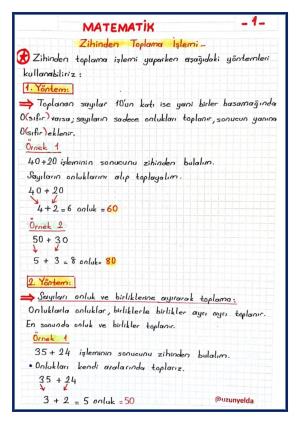 MATEMATİK
- 1 -
Zihinden Toplama İşlemi..
Zihinden toplama işlemi yaparken aşağıdaki yöntemleri
kullanabiliriz :
1. Yöntem:
Toplanan sayılar 10'un katı ise yani birler basamağında
0(sıfır) varsa; sayıların sadece onlukları toplanır, sonucun yanına
0(sıfır) eklenir.
Örnek 1
40+20 işleminin sonucunu zihinden bulalım.
Sayıların onluklarını alıp toplayalım.
40 + 20
4 + 2 = 6 onluk = 60
Örnek 2
50 + 30
5 + 3 = 8 onluk = 80
2. Yöntem:
Sayıları onluk ve birliklerine ayırarak toplama:
Onluklarla onluklar, birliklerle birlikler ayrı ayrı toplanır.
En sonunda onluk ve birlikler toplanır.
Örnek 1
35 + 24 işleminin sonucunu zihinden bulalım.
• Onlukları kendi aralarında toplarız.
35 + 24
3 + 2 = 5 onluk = 50
@uzunyelda